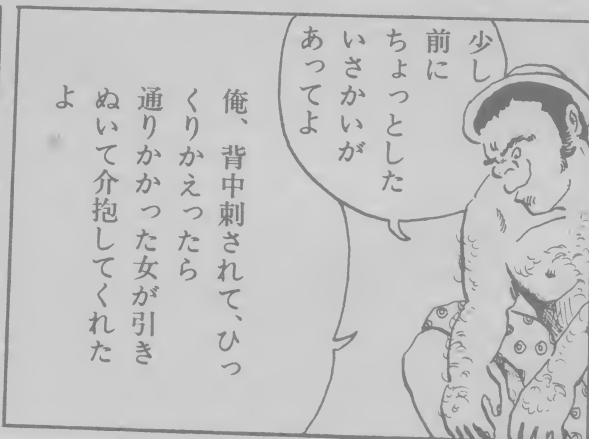 少し
前に
ちょっとした
いさかいが
あってよ
俺、背中刺されて、ひっ
くりかえったら
通りかかった女が引き
ぬいて介抱してくれた
よ